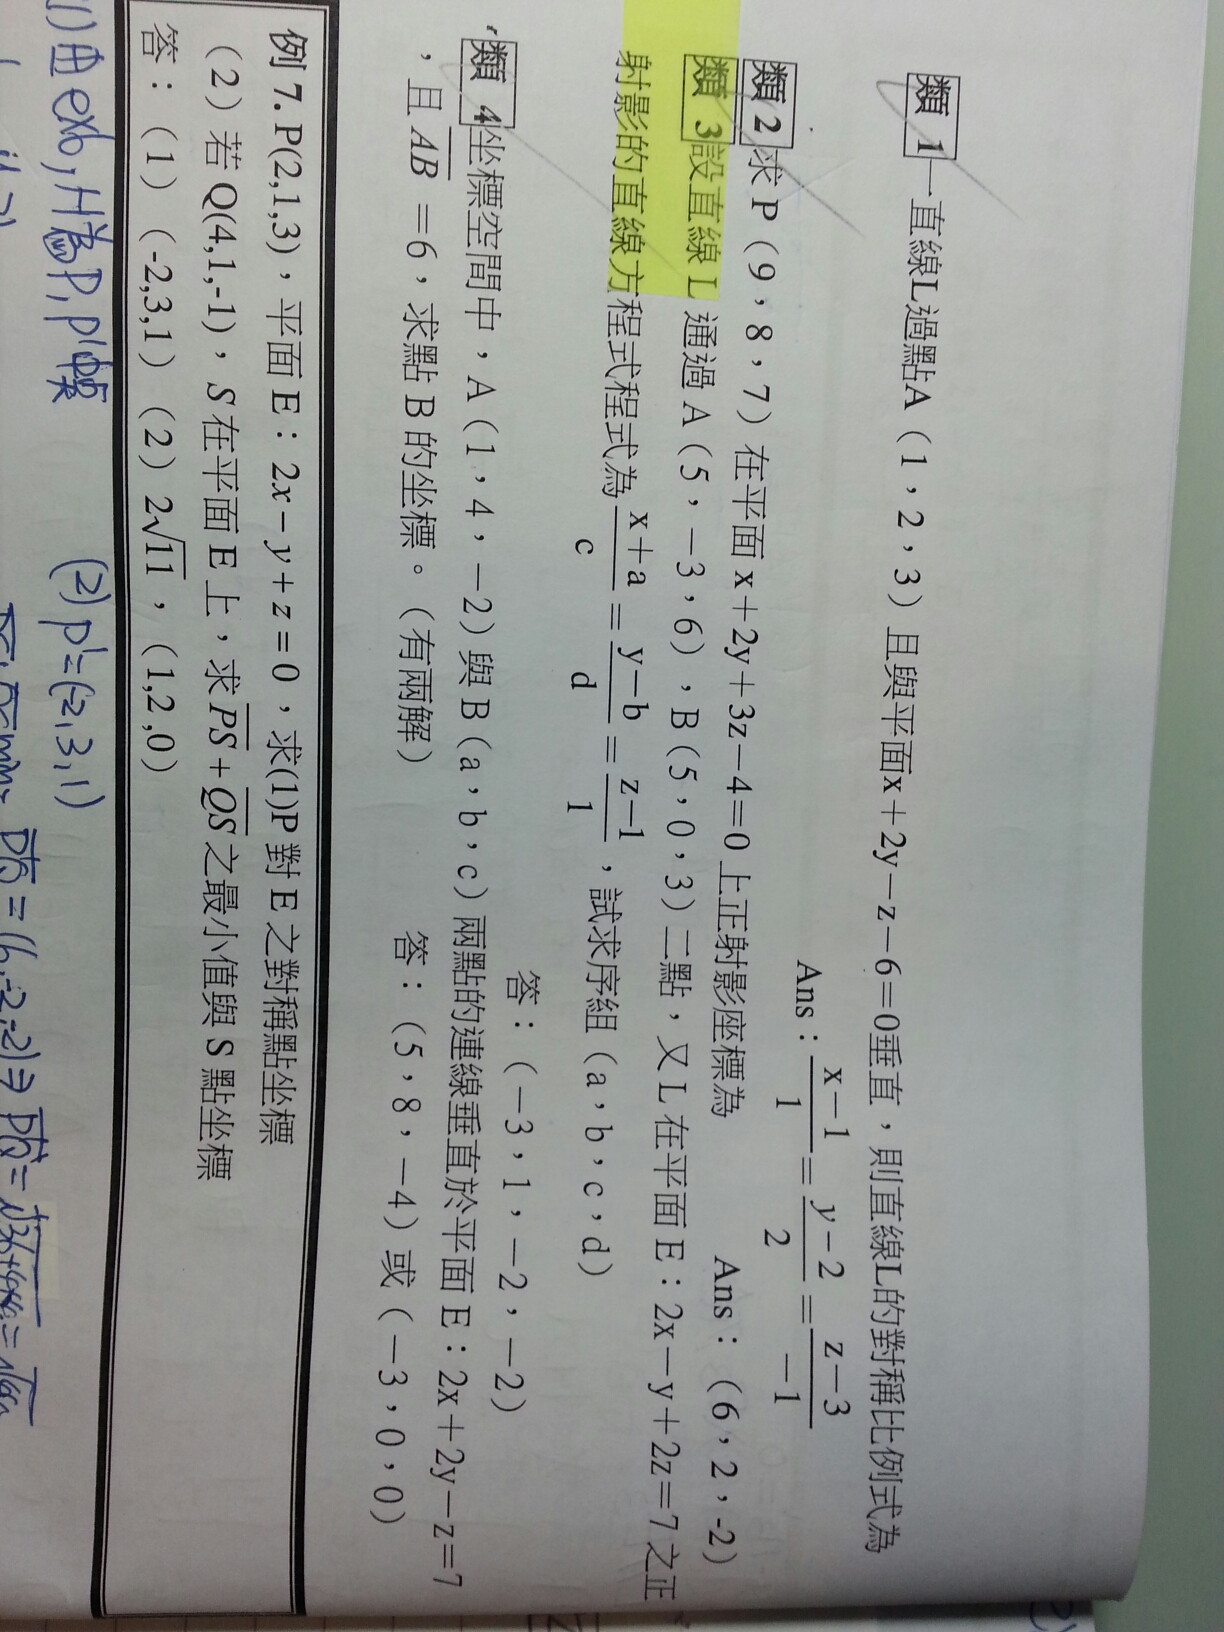 類1一直線L過點A(1,2,3)且與平面x+2y-z-6=0垂直,則直線L的對稱比例式為
Ans:x-1/1=y-2/2=z-3/-1
類2求P(9,8,7)在平面x+2y+3z-4=0上正射影座標為 Ans:(6,2,-2)
類3設直線L通過A(5,-3,6),B(5,0,3)二點,又L在平面E:2x-y+2z=7之正
射影的直線方程式程式為x+a/c=y-b/d=z-1/1,試求序組(a,b,c,d)
答:(-3,1,-2,-2)
類4坐標空間中,A(1,4,-2)與B(a,b,c)兩點的連線垂直於平面E:2x+2y-z=7
,且AB=6,求點B的坐標。(有兩解) 答:(5,8,-4)或(-3,0,0)
例7.P(2,1,3),平面E:2x-y+z=0,求(1)P對E之對稱點坐標
(2)若Q(4,1,-1),S在平面E上,求PS+QS之最小值與S點坐標
答:(1)(-2,3,1)(2)2√11,(1,2,0)
(1)由ex6,H為P,P'中點 (2)P'=(-2,3,1)